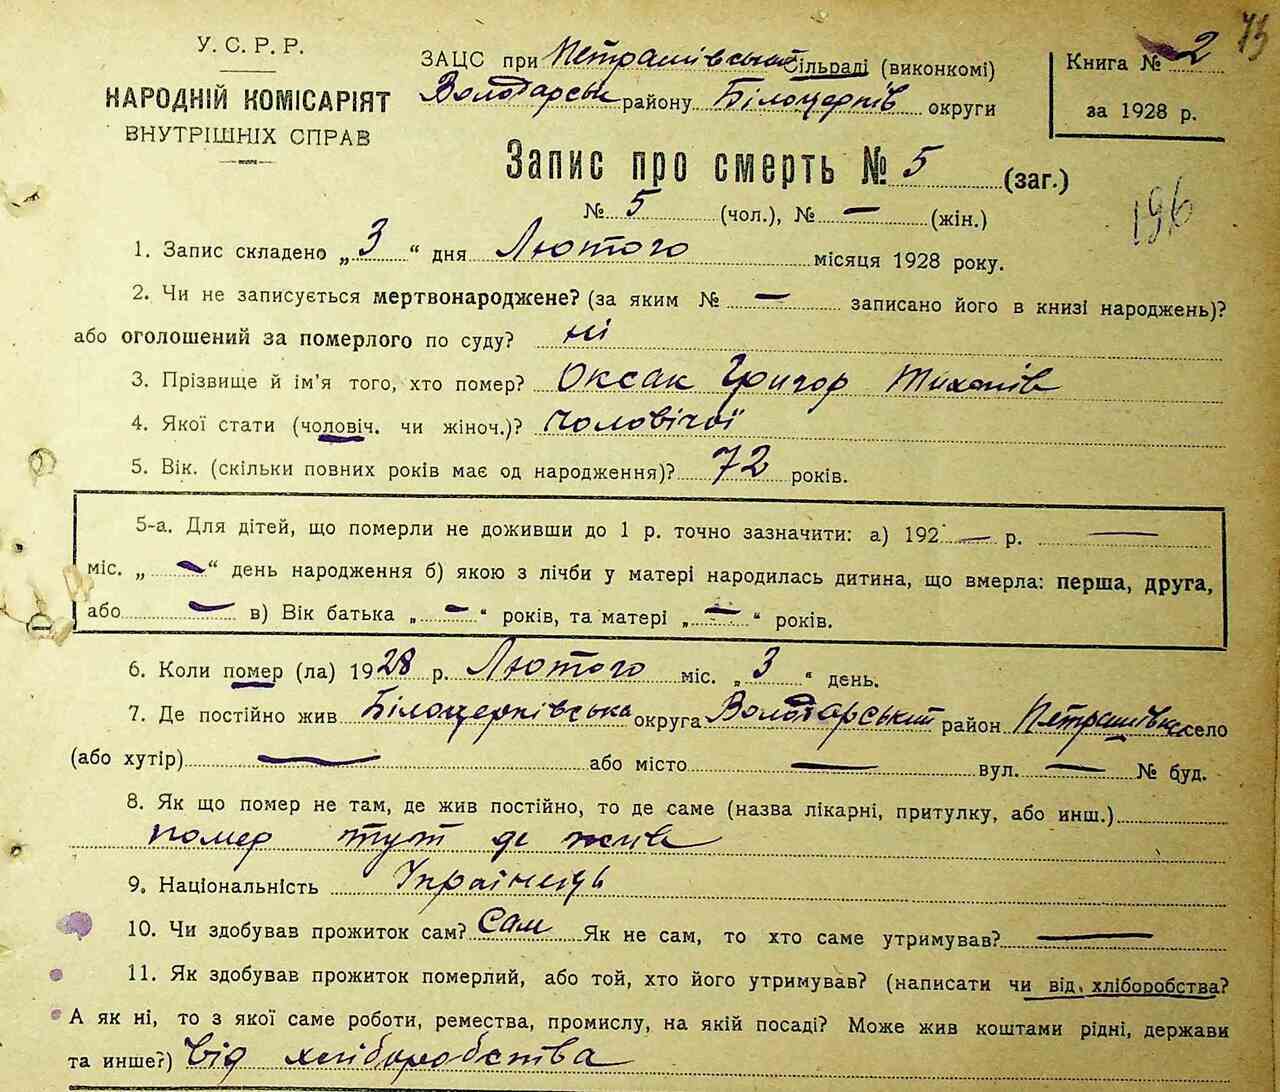 У. С. Р. Р.
НАРОДНІЙ КОМІСАРІЯТ
ВНУТРІШНІХ СПРАВ
ЗАЦС при Петрашівській Сільраді (виконкомі)
Володарськ району Білоцерків округи
Книга № 2
за 1928 р.
73
Запис про смерть № 5 (заг.)
№ 5 (чол.), № — (жін.)
196
1. Запис складено „3“ дня Лютого місяця 1928 року.
2. Чи не записується мертвонароджене? (за яким № — записано його в книзі народжень)?
або оголошений за померлого по суду? ні
3. Прізвище й ім'я того, хто помер? Оксак Григор Тихонів
4. Якої стати (чоловіч. чи жіноч.)? чоловічої
5. Вік. (скільки повних років має од народження)? 72 років.
5-а. Для дітей, що померли не доживши до 1 р. точно зазначити: а) 192 — р. —
міс. „—“ день народження б) якою з лічби у матері народилась дитина, що вмерла: перша, друга,
або — в) Вік батька „—“ років, та матері „—“ років.
6. Коли помер (ла) 1928 р. Лютого міс. „3“ день.
7. Де постійно жив Білоцерківська округа Володарський район Петрашівка село
(або хутір) — або місто — вул. — № буд.
8. Як що помер не там, де жив постійно, то де саме (назва лікарні, притулку, або инш.)
помер тут де жив
9. Національність Українець
10. Чи здобував прожиток сам? Сам Як не сам, то хто саме утримував? —
11. Як здобував прожиток померлий, або той, хто його утримував? (написати чи від хліборобства?
А як ні, то з якої саме роботи, ремества, промислу, на якій посаді? Може жив коштами рідні, держави
та инше?) Від хліборобства